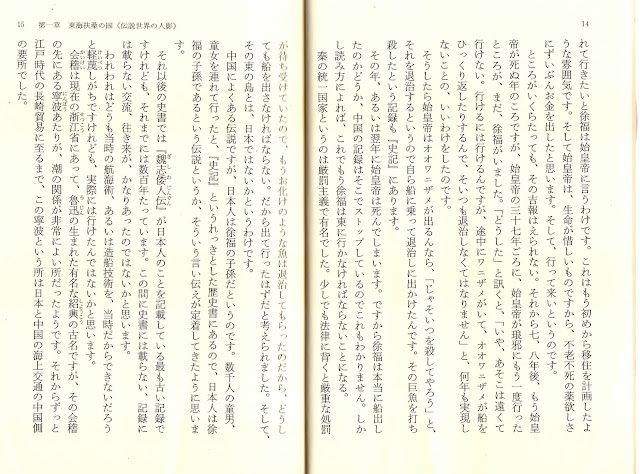 14
れて行きたいと徐福は始皇帝に言うわけです。これはもう初めから移住を計画したよ
うな雰囲気です。そして始皇帝は、生命が惜しいものですから、不老不死の薬欲しさ
にずいぶんお金を出したと思います。そして、行って来いというのです。
ところがいくらたっても、その吉報はえられない。それから七、八年後、もう始皇
帝が死ぬ年のころですが、始皇帝の三十七年ごろに、始皇帝が琅邪にもう一度行った
ところが、まだ、徐福がいました。「どうした」と訊くと、「いや、あそこは遠くて
行けない。行けるには行けるんですが、途中にワニザメがいて、オオワニザメが船を
ひっくり返したりするんで、そいつも退治しなくてはなりません」と、何年も実現し
ないことの、いいわけをしたのです。
そうしたら始皇帝はオオワニザメが出るんなら、「じゃそいつを殺してやろう」と、
それを退治するというので自ら船に乗って退治しに出かけたんです。その巨魚を打ち
殺したという記録も『史記』にあります。
その年、あるいは翌年に始皇帝は死んでしまいます。ですから徐福は本当に船出し
たのかどうか、中国の記録はそこでストップしているのでこれもわかりません。しか
し読み方によれば、これでもう徐福は東に行かなければならないことになる。
秦の統一国家というのは厳罰主義で有名でした。少しでも法律に背くと厳重な処罰
15 第一章 東海扶桑の国《伝説世界の人影》
が待ち受けていたので、もうお化けのような魚は退治してもらったのだから、どうし
ても船を出さなければならない。だから出て行ったはずだと考えられました。そして、
その東の島とは、日本ではないかというわけです。
中国によくある伝説ですが、日本人は徐福の子孫だというのです。数千人の童男、
童女を連れて行ったと、『史記』というれっきとした歴史書にあるので、日本人は徐
福の子孫であるという伝説というか、そういう言い伝えが定着してきたように思いま
す。
それ以後の史書では『魏志倭人伝』が日本人のことを記載している最も古い記録で
すけれども、それまでには数百年たっています。この間に史書には載らない、記録に
は載らない交流、往き来が、かなりあったのではないかと思います。
われわれはどうも当時の航海術、あるいは造船技術を、当時だからできないだろう
と軽蔑しがちですけれども、実際には行けたんではないかと思います。
会稽は現在の浙江省にあって、魯迅の生まれた有名な紹興の古名ですが、その会稽
の先にある寧波あたりが、潮の関係が非常によい所だったようです。それからずっと
江戸時代の長崎貿易に至るまで、この寧波という所は日本と中国の海上交通の中国側
の要所でした。